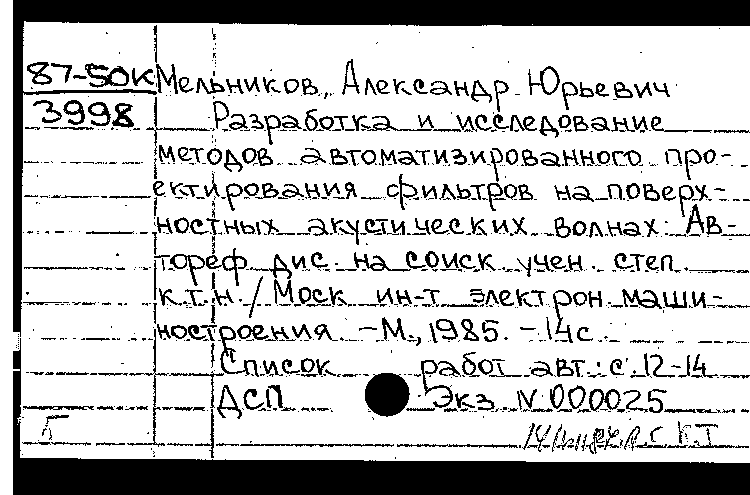 87-50к Мельников, Александр Юрьевич
3998 Разработка и исследование
методов автоматизированного про-
ектирования фильтров на поверх-
ностных акустических волнах: Ав-
тореф дис. на соиск учен. степ.
к.т.н. / Моск ин-т электрон. маши-
ностроения. - М., 1985. - 14с.
Список работ авт.: с. 12-14
ДСП Экз N 000025
Б
К Т